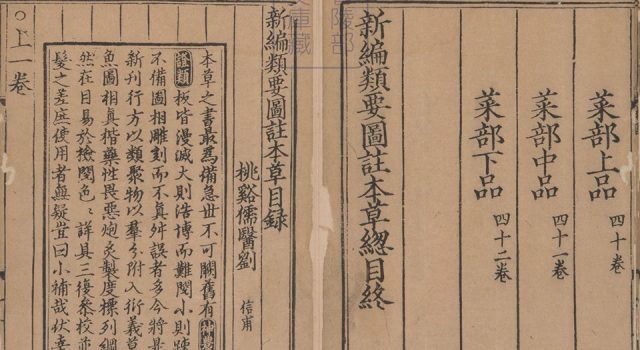 菜部上品 四十卷
菜部中品 四十一卷
菜部下品 四十二卷
新編類要圖註本草總目終
陵部
庫藏
新編類要圖註本草目録
桃谿儒醫劉 信甫
本草之書最爲備急世不可闕舊有
證類板皆漫滅大則浩博而難閱小則踈
不備圖相雕刻而不真舛誤者多今將是
新刊行方以類聚物以羣分附入衍義草
魚圖相真楷藥性畏惡炮炙製度標列綱
然在目易於檢閱色〻詳具三復叅校並
髮之差庶使用者無疑豈曰小補哉伏幸
○上一卷